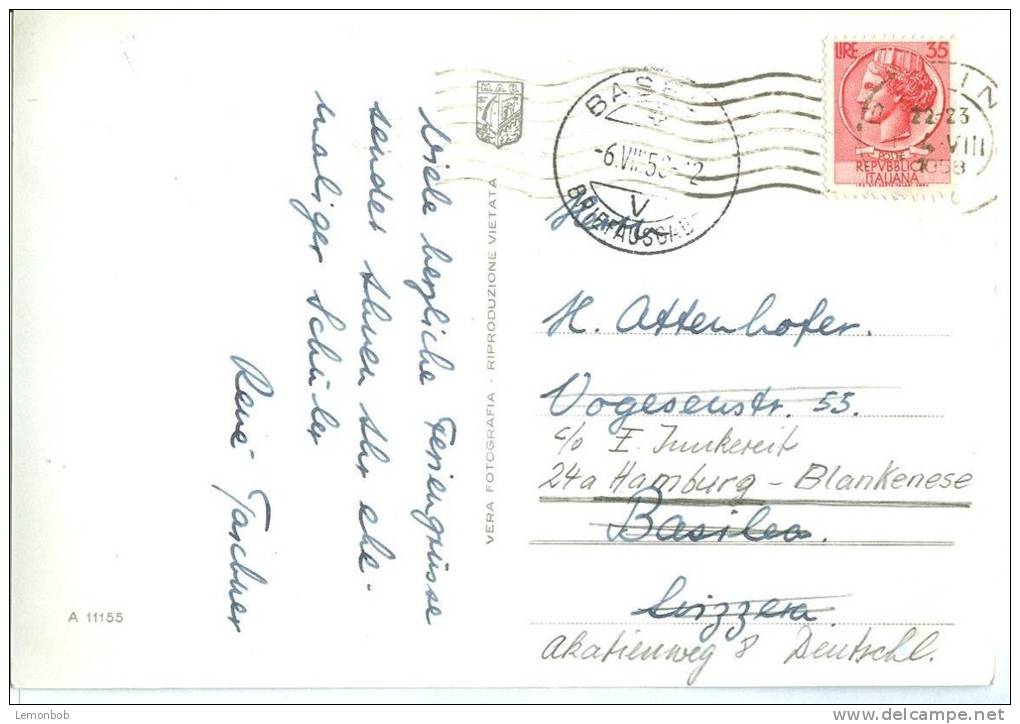 Viele herzliche Feriengrüsse
sendet Ihnen Ihr ehe-
maliger Schüler
René Taschner
A 11155
M.A.R.
VERA FOTOGRAFIA - RIPRODUZIONE VIETATA
BASEL
-6.VIII.58-12
V
BRIEFAUSGABE
LIRE 35
POSTE
REPVBBLICA
ITALIANA
22-23
VIII
1958
H. Attenhofer.
Vogesenstr. 53.
c/o E. Junkereit
24a Hamburg - Blankenese
Basilea.
Svizzera.
Akatienweg 8 Deutschl.
Lemonbob
delcampe.net